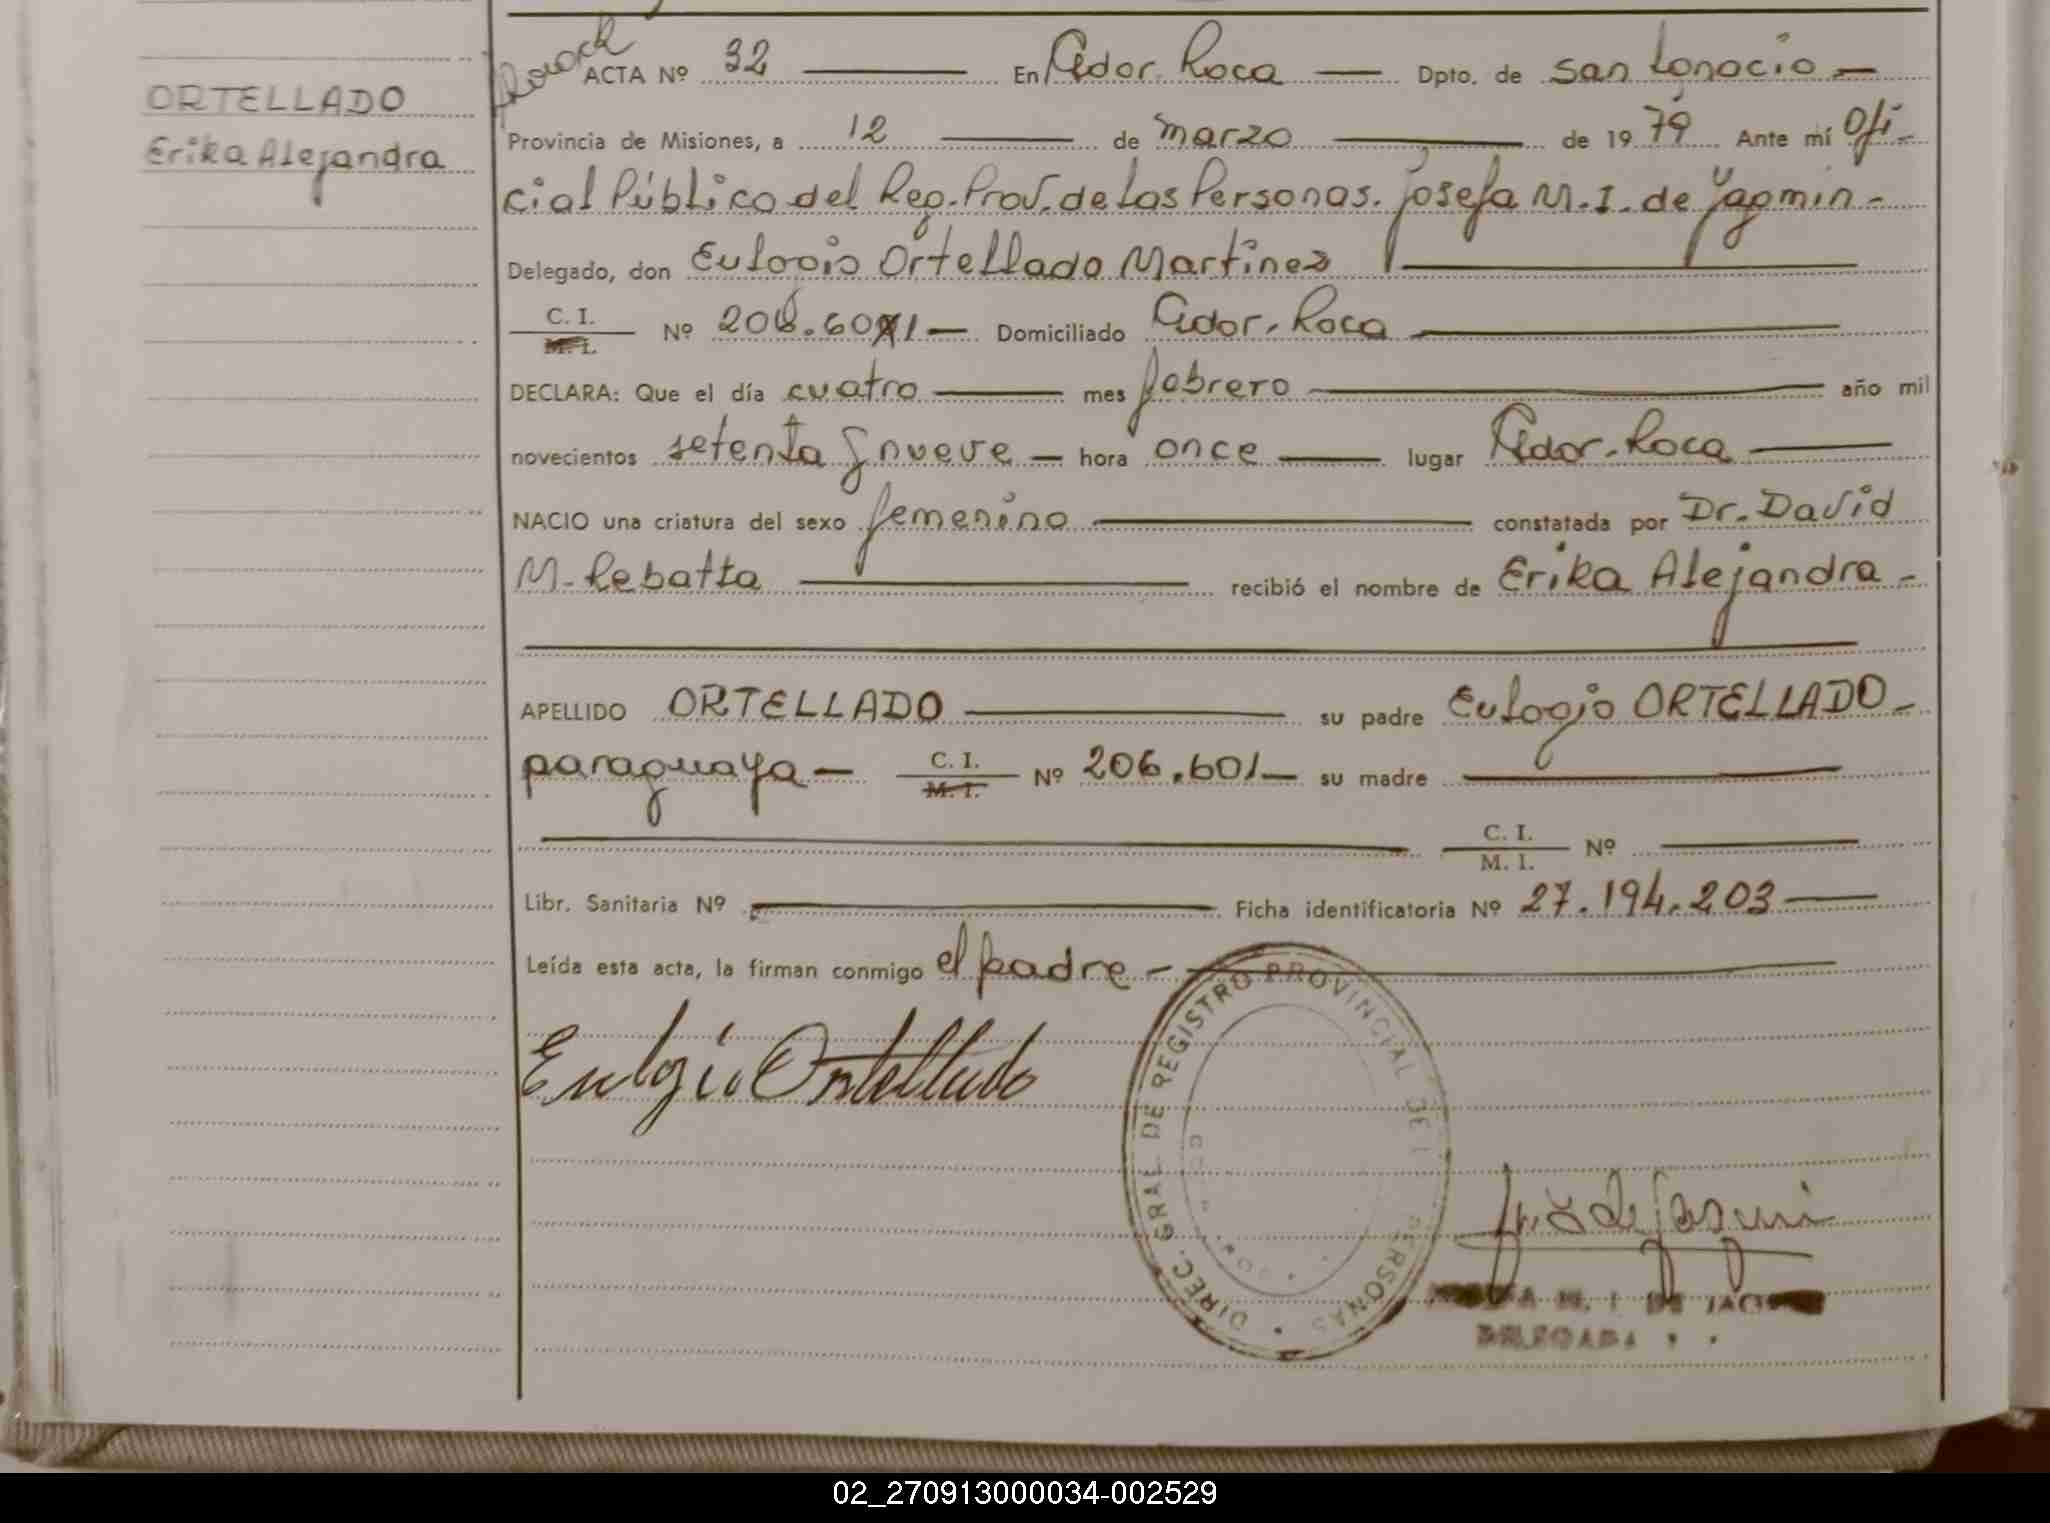 ORTELLADO
Erika Alejandra
ACTA Nº 32 En Gdor. Roca Dpto. de San Ignacio
Provincia de Misiones, a 12 de marzo de 1979 Ante mí Ofi-
cial Público del Reg. Prov. de las Personas. Josefa M. I. de Yagmin -
Delegado, don Eulogio Ortellado Martinez
C. I.
M. I.
Nº 206.601 Domiciliado Gdor. Roca
DECLARA: Que el día cuatro mes febrero año mil
novecientos setenta y nueve hora once lugar Gdor. Roca
NACIO una criatura del sexo femenino constatada por Dr. David
M. Rebatta recibió el nombre de Erika Alejandra -
APELLIDO ORTELLADO su padre Eulogio ORTELLADO -
paraguaya - C. I. / M. I. Nº 206.601 su madre
C. I. / M. I. Nº
Libr. Sanitaria Nº Ficha identificatoria Nº 27.194.203
Leída esta acta, la firman conmigo el padre -
Eulogio Ortellado
DIREC. GRAL DE REGISTRO PROVINCIAL DE PERSONAS
M. I. DE
DELEGADA
02_270913000034-002529